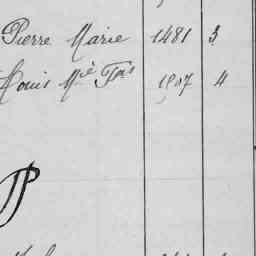 Pierre Marie 1481 3
Louis Mie Fois 1507 4
P